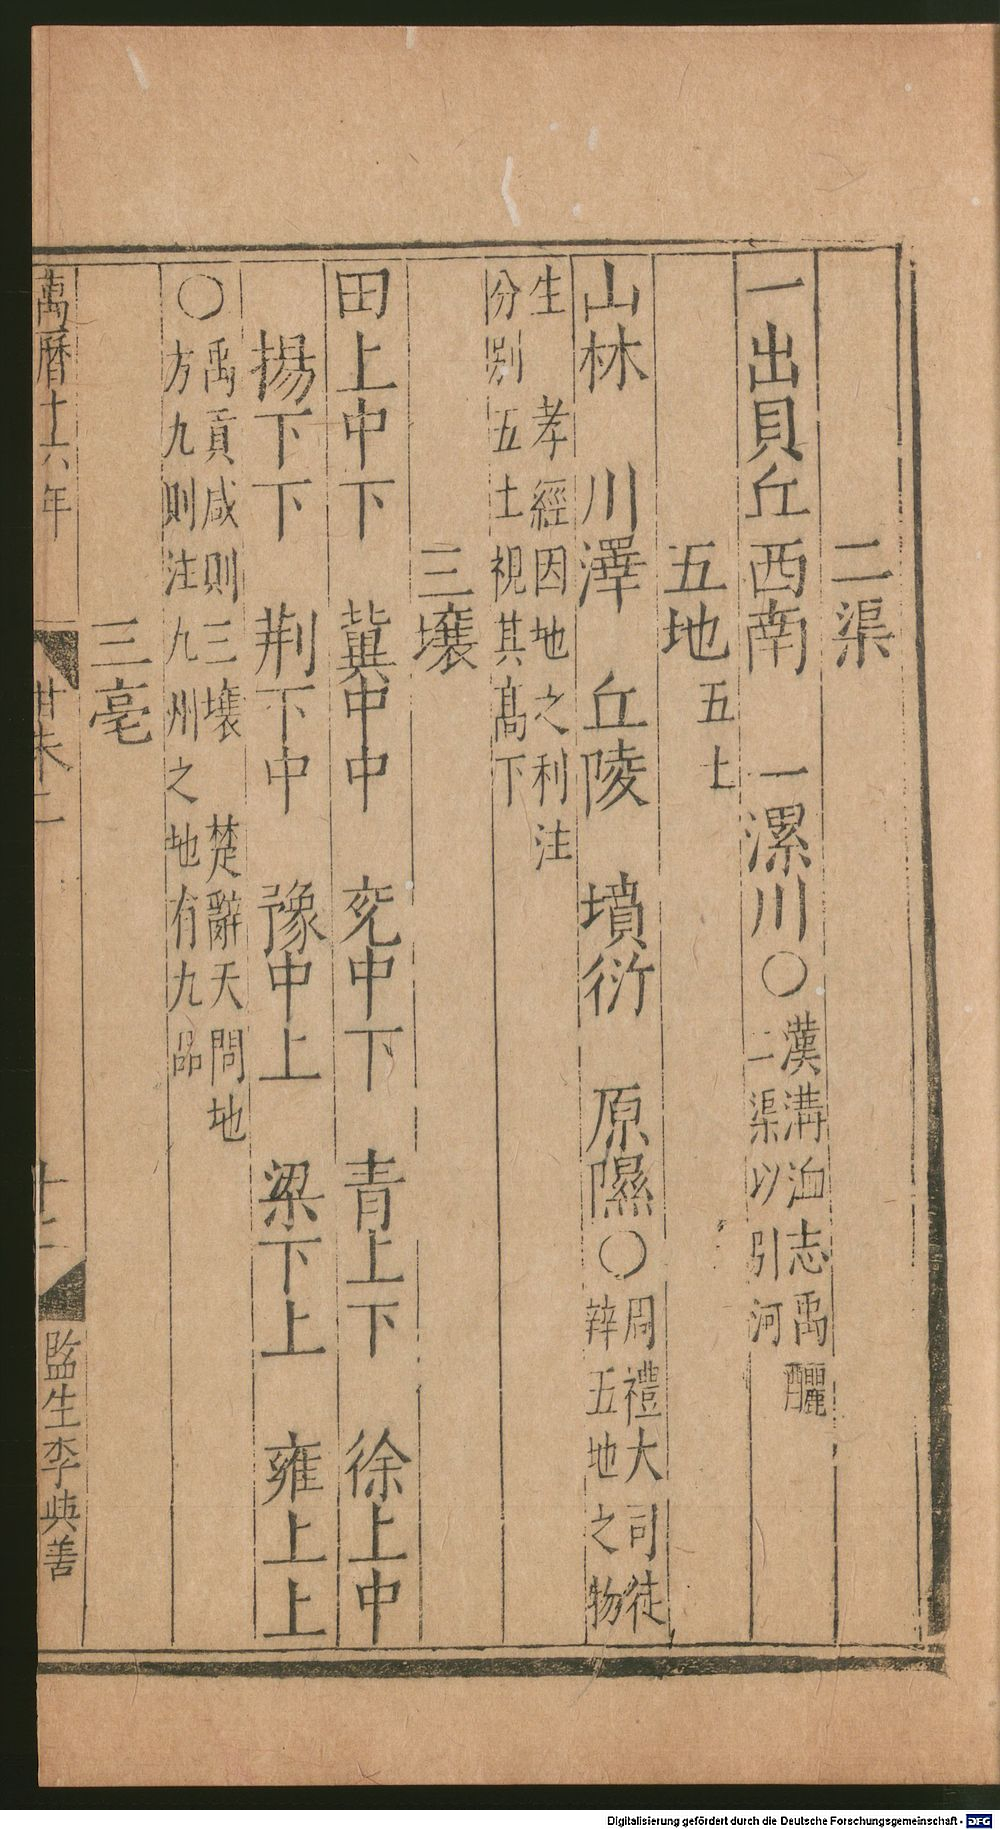 二渠
一出貝丘西南 一漯川○漢溝洫志禹釃
二渠以引河
五地五土
山林 川澤 丘陵 墳衍 原隰○周禮大司徒
辩五地之物
生 孝經因地之利注
分别五土視其高下
三壤
田上中下 冀中中 兖中下 青上下 徐上中
揚下下 荆下中 豫中上 梁下上 雍上上
○禹貢咸則三壤 楚辭天問地
方九則注九州之地有九品
三亳
萬曆十六年
十二
監生李典善
Digitalisierung gefördert durch die Deutsche Forschungsgemeinschaft - DFG